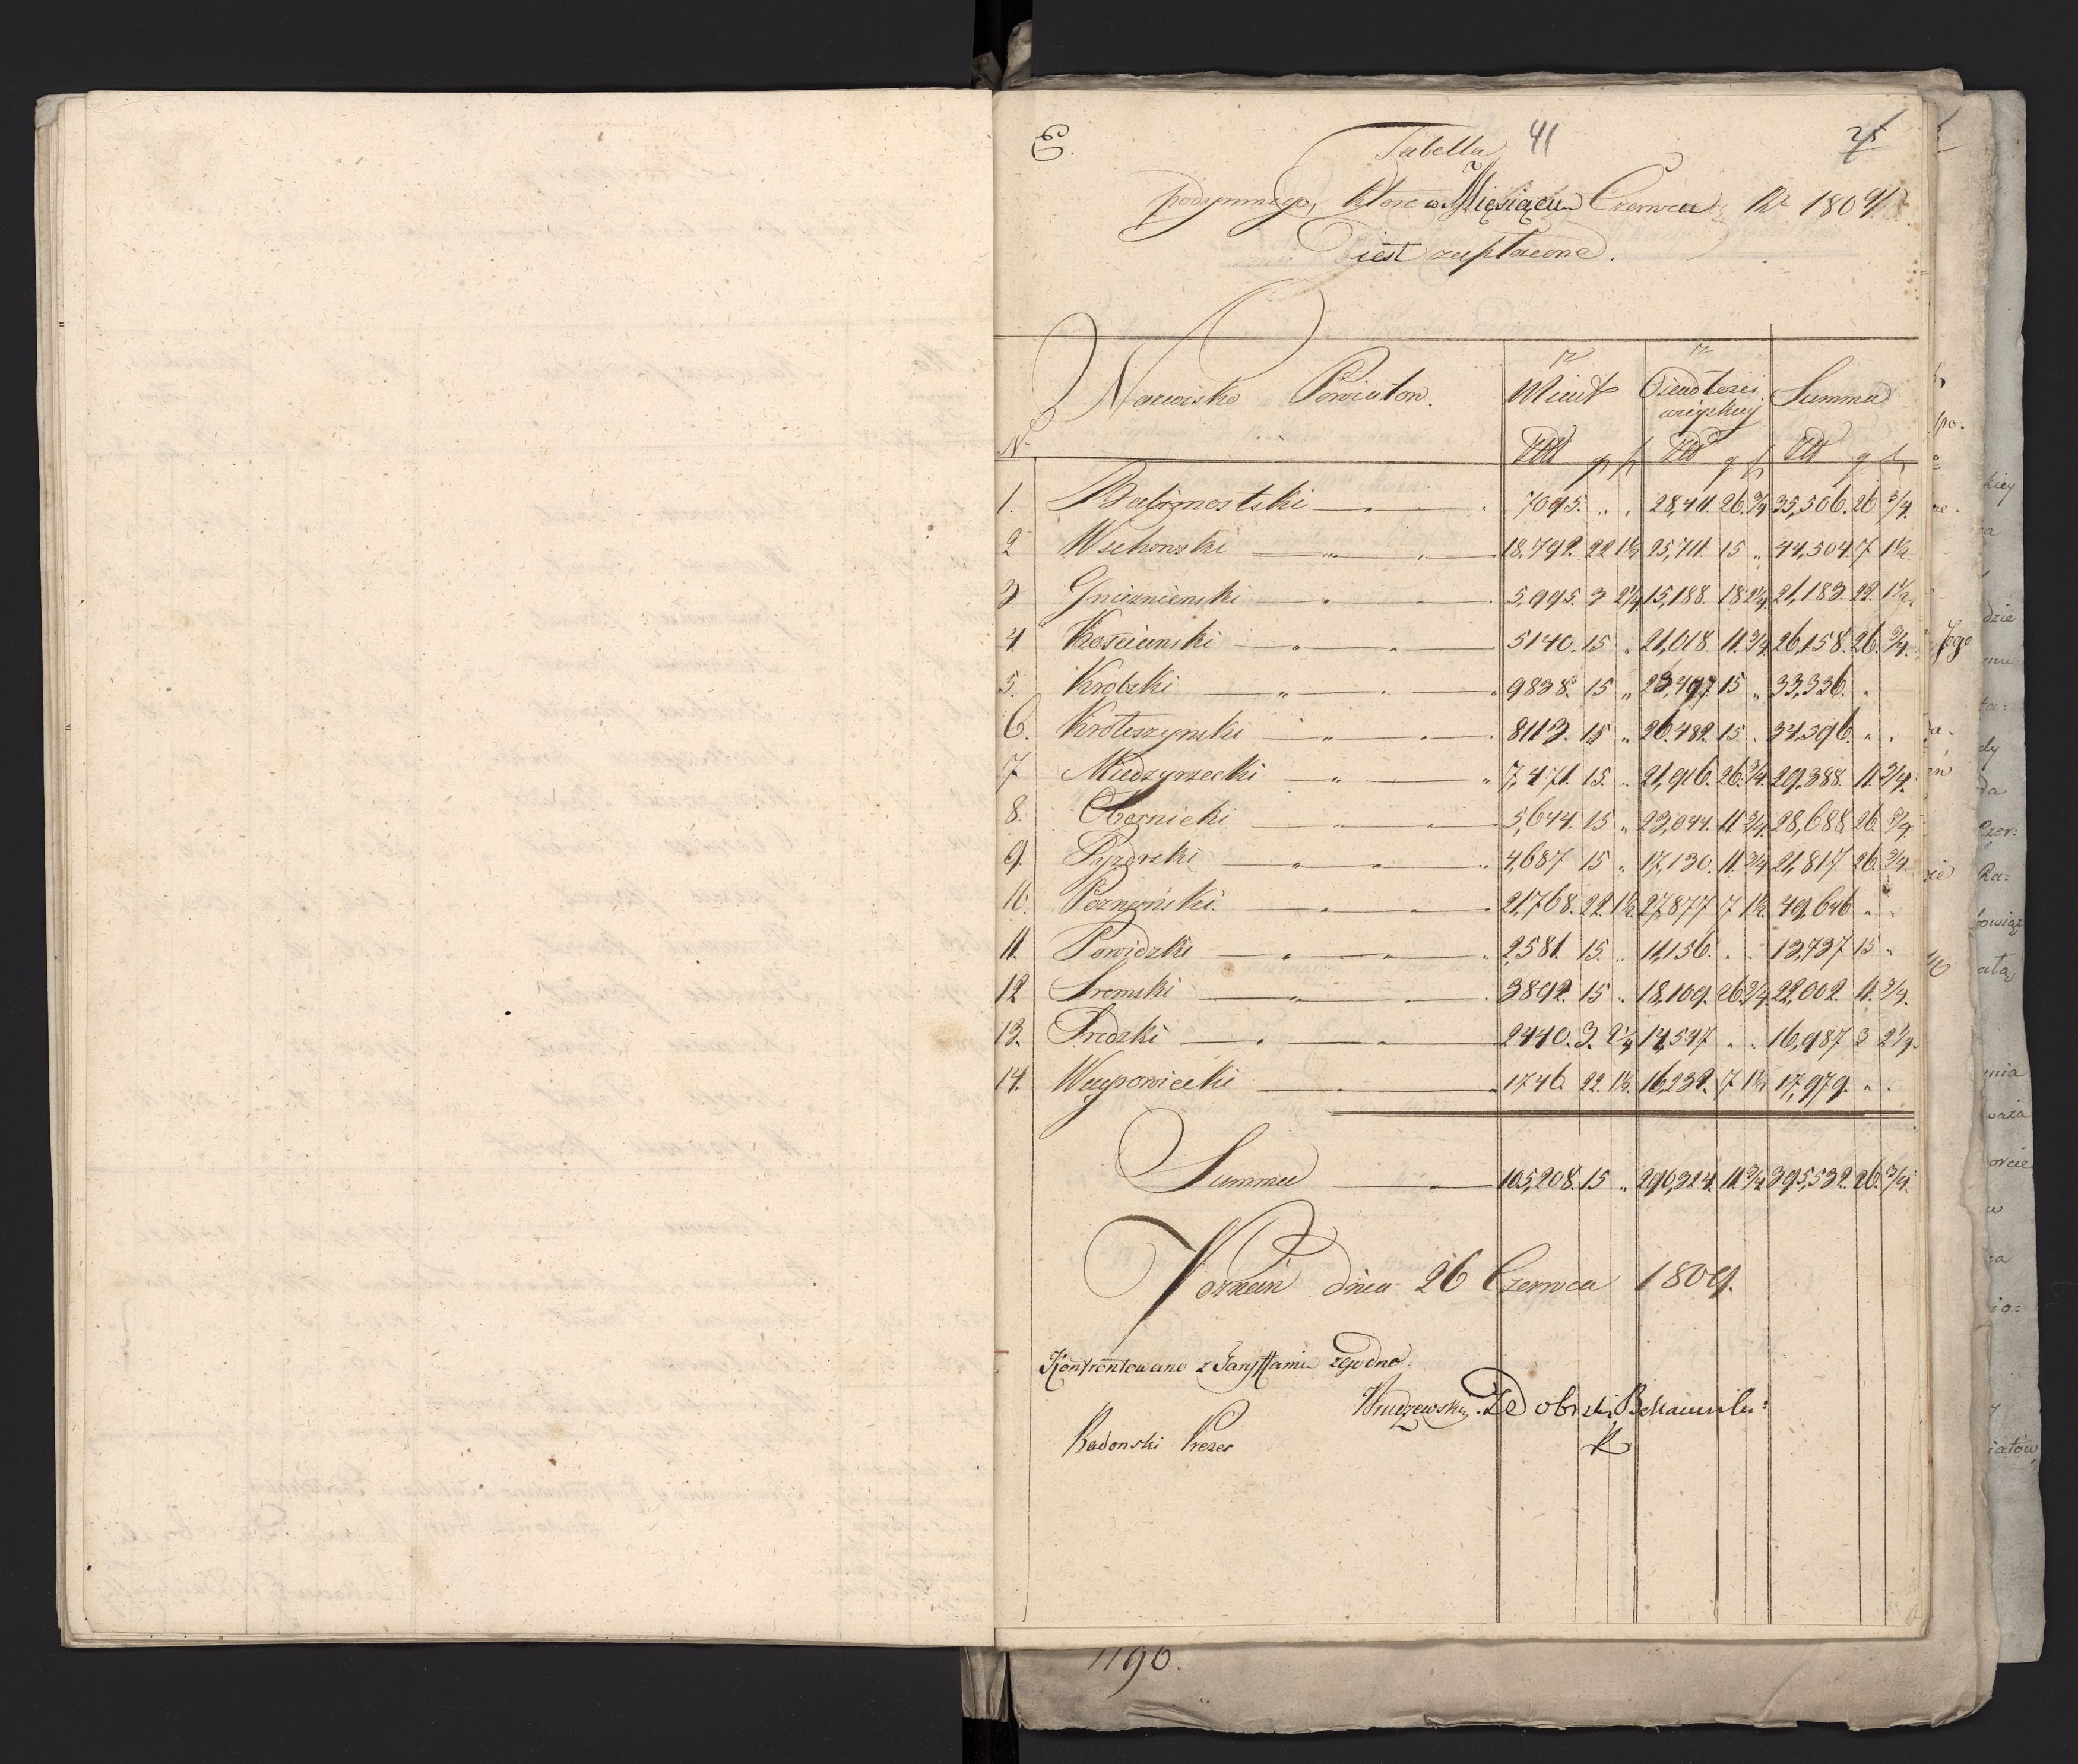 E.
41
25
Tabella
podymnego, ktore w Miesiącu Czerwcu Rr 1809.
iest zapłacone.
N. Nazwisko Powiatow. z Miast z Posiadłosci wieyskiey Summa
Złł g f Złł g f Złł g f
1. Babimostski 7095. „ „ 28,411. 26. 3/4 35,506. 26 3/4.
2 Wschowski 18,792. 22 1 1/2 25,711. 15 „ 44,504. 7 1 1/2.
3 Gnieznienski 5,995. 3 2 1/4 15,188. 18 2 1/4 21,183. 22. 1 1/2.
4 Kościanski 5140. 15 „ 21,018. 11. 3/4 26,158. 26. 3/4.
5. Krobski 9838. 15 „ 23,497. 15 „ 33,336. „
6. Krotoszynski 8113. 15 „ 26,482. 15 „ 34,596. „ „
7 Miedzyrzecki 7,471. 15. „ 21,916. 26. 3/4. 29,388. 11. 3/4.
8. Obornicki 5,644. 15 „ 23,044. 11 3/4 28,688. 26. 3/4
9. Pyzdrski 4,687 15 „ 17,130. 11. 3/4 21,817 26. 3/4.
10. Poznański. 21,768. 22. 1 1/2. 27,877 7 1 1/2. 49,646 „ „
11. Powidzki 2,581. 15. „ 11,156. „ „ 13,737 15 „
12 Sremski 3892. 15 „ 18,109. 26 3/4 22,002. 11. 3/4.
13. Sredzki 2440. 3. 2 1/4 14,547 „ „ 16,987 3 2 1/4.
14. Wągrowiecki 1746. 22. 1 1/2. 16,232. 7 1 1/2 17,979. „ „
Summa 105,208. 15 „ 290,324. 11. 3/4 395,532. 26. 3/4.
Poznań dnia 26 Czerwca 1809.
Konfrontowano z Taryffami zgodno.
Radonski Prezes
1196.